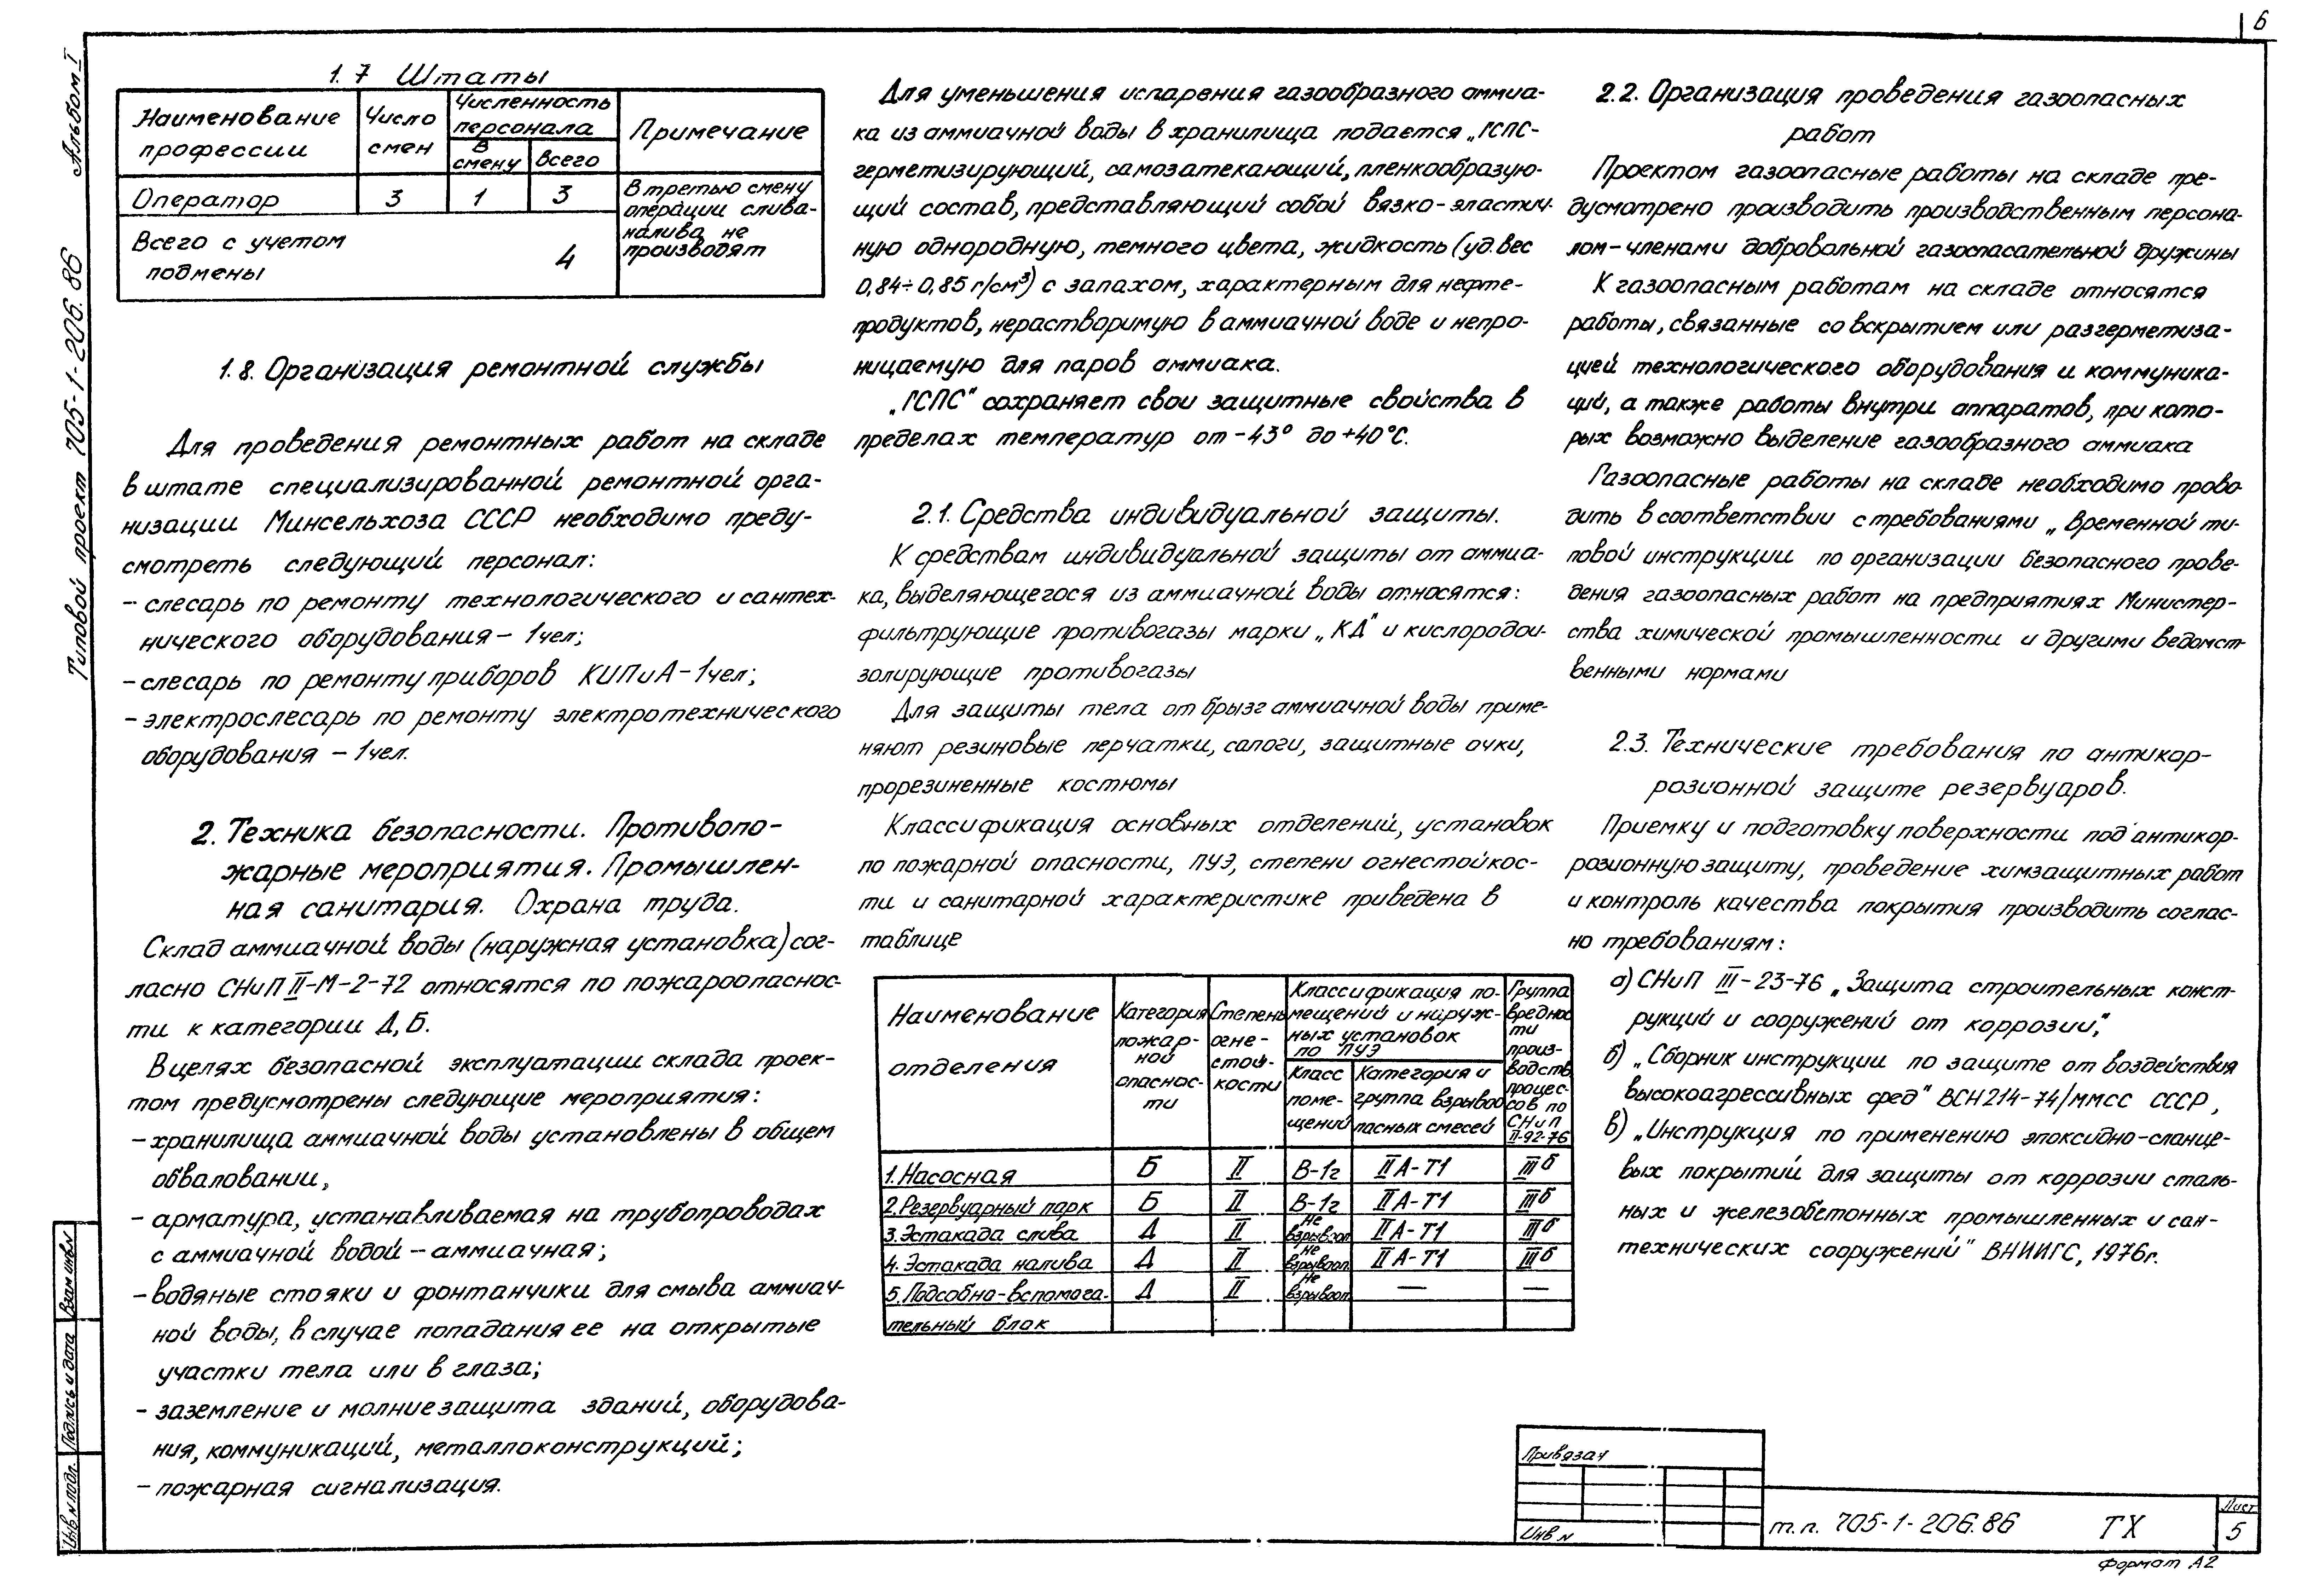 6
Альбом I
Типовой проект 705-1-206.86
1.7 Штаты
Наименование профессии
Число смен
Численность персонала
В смену
всего
Примечание
Оператор 3 1 3
В третью смену
операции слива-
налива не
производят
Всего с учетом
подмены 4
1.8. Организация ремонтной службы
Для проведения ремонтных работ на складе
в штате специализированной ремонтной орга-
низации Минсельхоза СССР необходимо преду-
смотреть следующий персонал:
- слесарь по ремонту технологического и сантех-
нического оборудования - 1чел;
- слесарь по ремонту приборов КИПиА - 1чел;
- электрослесарь по ремонту электротехнического
оборудования - 1чел.
2. Техника безопасности. Противопо-
жарные мероприятия. Промышлен-
ная санитария. Охрана труда.
Склад аммиачной воды (наружная установка) сог-
ласно СНиП II-М-2-72 относятся по пожароопаснос-
ти к категории Д, Б.
В целях безопасной эксплуатации склада проек-
том предусмотрены следующие мероприятия:
- хранилища аммиачной воды установлены в общем
обваловании,
- арматура, устанавливаемая на трубопроводах
с аммиачной водой - аммиачная;
- водяные стояки и фонтанчики для смыва аммиач-
ной воды, в случае попадания ее на открытые
участки тела или в глаза;
- заземление и молниезащита зданий, оборудова-
ния, коммуникаций, металлоконструкций;
- пожарная сигнализация.
Для уменьшения испарения газообразного аммиа-
ка из аммиачной воды в хранилища подается „ГСПС-
герметизирующий, самозатекающий, пленкообразую-
щий состав, представляющий собой вязко-эластич-
ную однородную, темного цвета, жидкость (уд. вес
0,84÷0,85 г/см³) с запахом, характерным для нефте-
продуктов, нерастворимую в аммиачной воде и непро-
ницаемую для паров аммиака.
„ГСПС" сохраняет свои защитные свойства в
пределах температур от -43° до +40°С.
2.1. Средства индивидуальной защиты.
К средствам индивидуальной защиты от аммиа-
ка, выделяющегося из аммиачной воды относятся:
фильтрующие противогазы марки „КД" и кислородои-
золирующие противогазы
Для защиты тела от брызг аммиачной воды приме-
няют резиновые перчатки, сапоги, защитные очки,
прорезиненные костюмы
Классификация основных отделений, установок
по пожарной опасности, ПУЭ, степени огнестойкос-
ти и санитарной характеристике приведена в
таблице
Наименование отделения
Категория пожар-ной опаснос-ти
Степень огне-стой-кости
Классификация по-мещений и наруж-ных установок по ПУЭ
Класс поме-щений
Категория и группа взрывоо пасных смесей
Группа вреднос ти произ-водств. процес-сов по СНиП II-92-76
1. Насосная Б II В-1г IIА-Т1 IIIб
2. Резервуарный парк Б II В-1г IIА-Т1 IIIб
3. Эстакада слива Д II Не взрывооп. IIА-Т1 IIIб
4. Эстакада налива Д II Не взрывооп. IIА-Т1 IIIб
5. Подсобно-вспомога- Д II Не взрывооп. — —
тельный блок
2.2. Организация проведения газоопасных
работ
Проектом газоопасные работы на складе пре-
дусмотрено производить производственным персона-
лом-членами добровольной газоспасательной дружины
К газоопасным работам на складе относятся
работы, связанные со вскрытием или разгерметиза-
цией технологического оборудования и коммуника-
ций, а также работы внутри аппаратов, при кото-
рых возможно выделение газообразного аммиака
Газоопасные работы на складе необходимо прово-
дить в соответствии с требованиями „Временной ти-
повой инструкции по организации безопасного прове-
дения газоопасных работ на предприятиях Министер-
ства химической промышленности и другими ведомст-
венными нормами
2.3. Технические требования по антикор-
розионной защите резервуаров.
Приемку и подготовку поверхности под антикор-
розионную защиту, проведение химзащитных работ
и контроль качества покрытия производить соглас-
но требованиям:
а) СНиП III-23-76 „Защита строительных конст-
рукций и сооружений от коррозии,"
б) „Сборник инструкции по защите от воздействия
высокоагрессивных сред" ВСН214-74/ММСС СССР,
в) „Инструкция по применению эпоксидно-сланце-
вых покрытий для защиты от коррозии сталь-
ных и железобетонных промышленных и сан-
технических сооружений" ВНИИГС, 1976г.
Взам инв.N
Подпись и дата
Инв.N подл.
Привязан
Инв N
т.п. 705-1-206.86 ТХ
Лист
5
Формат А2